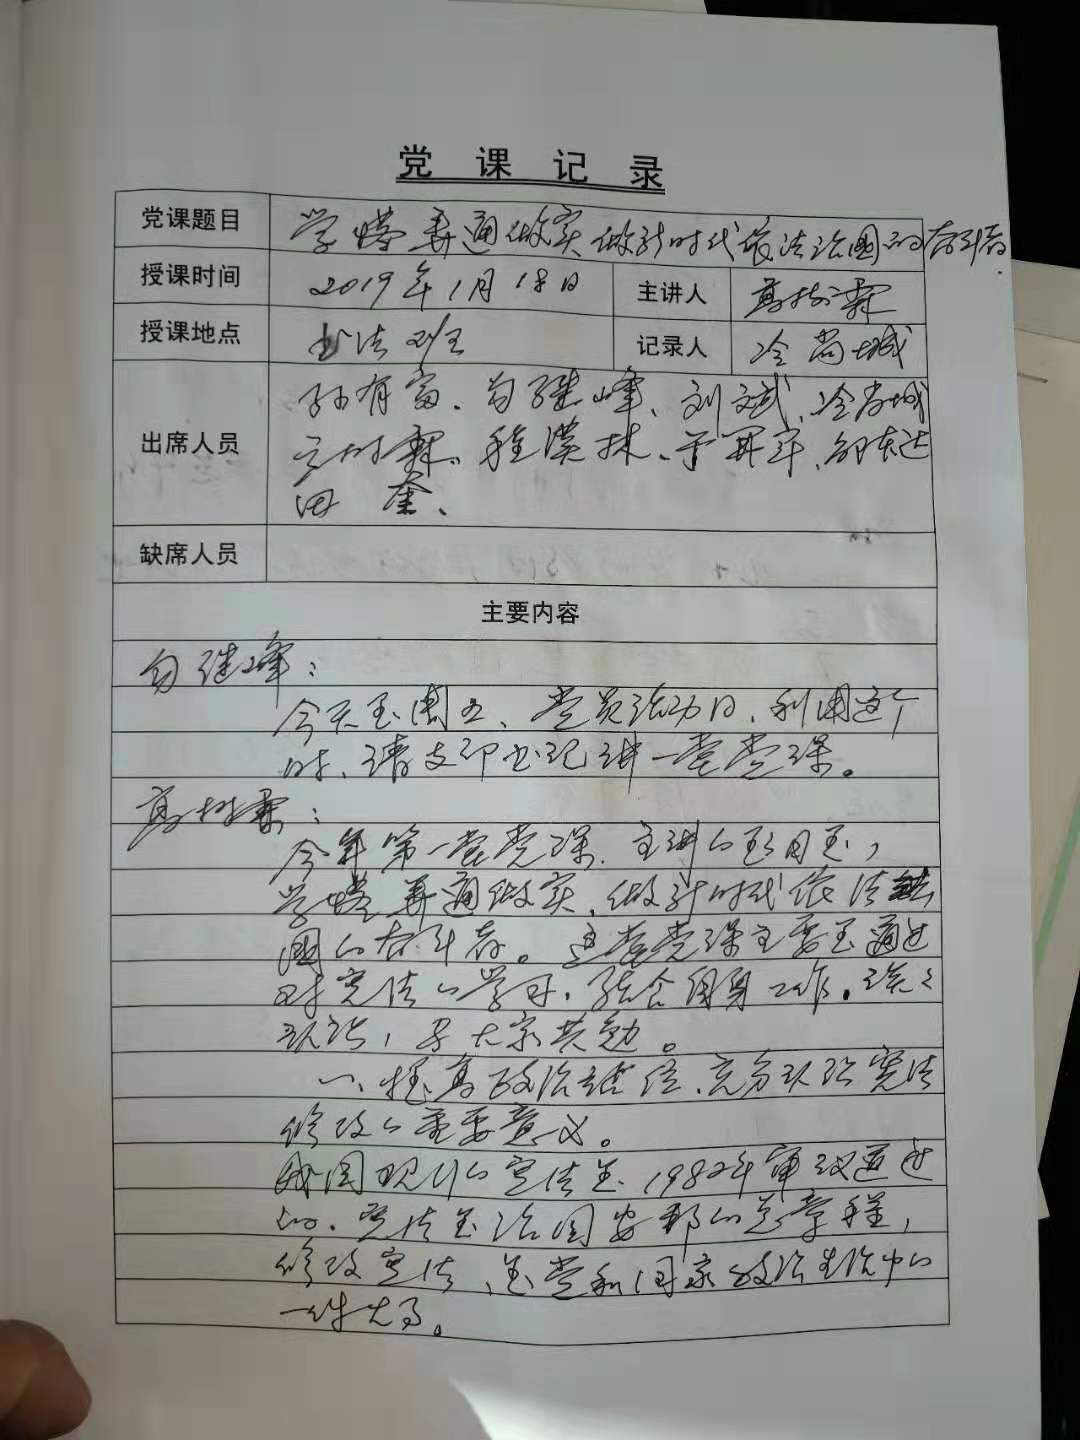 党课记录
党课题目 学懂弄通做实 做新时代依法治国的奋斗者.
授课时间 2019年1月18日 主讲人 高树霖
授课地点 书法班 记录人 冷尚城
出席人员 孙有富、勾继峰、刘文斌、冷尚城
高树霖、程汉林、于开军、邹长达
田奎、
缺席人员
主要内容
勾继峰：
今天是周五、党员活动日、利用这个
时、请支部书记讲一堂党课。
高树霖：
今年第一堂党课、主讲的题目是，
学懂弄通做实、做新时代依法治
国的奋斗者。这堂党课主要是通过
对宪法的学习，结合自身工作。谈谈
认识，与大家共勉。
一、提高政治站位、充分认识宪法
修改的重要意义。
我国现行的宪法是1982年审议通过
的。宪法是治国安邦的总章程，
修改宪法、是党和国家政治生活中的
一件大事。